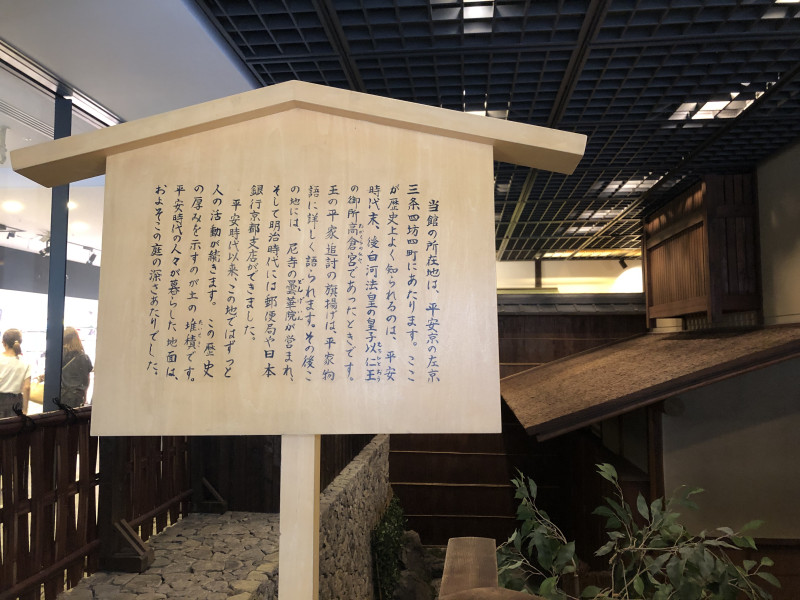 当館の所在地は、平安京の左京
三条四坊四町にあたります。ここ
が歴史上よく知られるのは、平安
時代末、後白河法皇の皇子以仁王
の御所高倉宮であったときです。
王の平家追討の旗揚げは、平家物
語に詳しく語られます。その後こ
の地には、尼寺の曇華院が営まれ、
そして明治時代には郵便局や日本
銀行京都支店ができました。
平安時代以来、この地ではずっと
人の活動が続きます。この歴史
の厚みを示すのが土の堆積です。
平安時代の人々が暮らした地面は、
およそこの庭の深さあたりでした。